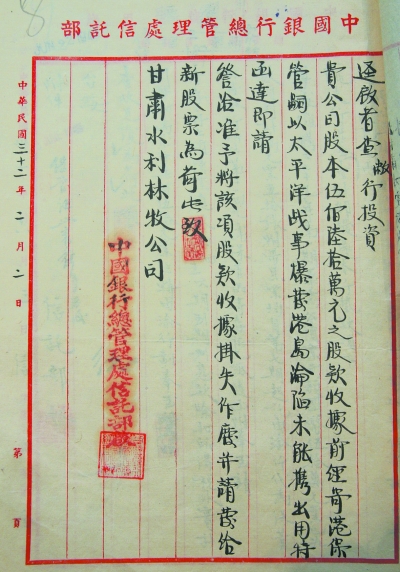 8
中國銀行總管理處信託部
逕啟者查敝行投資
貴公司股本伍佰陸拾萬元之股欵收據前經寄港保
管嗣以太平洋战事爆發港島淪陷未能携出用特
函達即請
詧洽准予將該項股欵收據掛失作廢并請發给
新股票為荷此致
甘肅水利林牧公司
中國銀行總管理處信託部
中華民國三十二年二月二日 第 頁